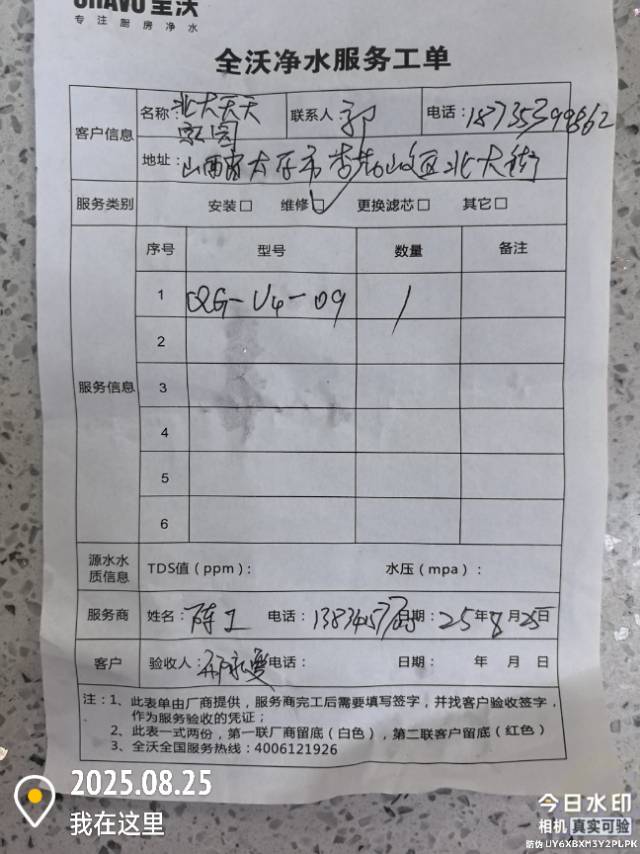 CHAVO全沃
专注厨房净水
全沃净水服务工单
客户信息 名称：北大天天 联系人 郭 电话：18735399862
家园
地址：山西省太原市 区北大街
服务类别 安装□ 维修☑ 更换滤芯□ 其它□
序号 型号 数量 备注
1 QG-U4-09 1
2
服务信息 3
4
5
6
源水水质信息 TDS值（ppm）： 水压（mpa）：
服务商 姓名：陈工 电话：1383457 日期：25年8月25日
客户 验收人： 电话： 日期： 年 月 日
注：1、此表单由厂商提供，服务商完工后需要填写签字，并找客户验收签字，
作为服务验收的凭证；
2、此表一式两份，第一联厂商留底（白色），第二联客户留底（红色）
3、全沃全国服务热线：4006121926
2025.08.25
我在这里
今日水印
相机 真实可验
防伪 UY6XBXM3Y2PLPK